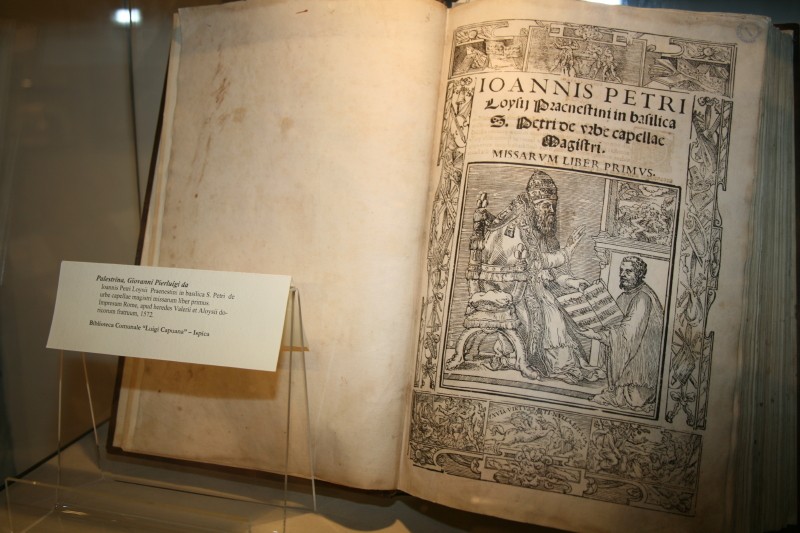 Palestrina, Giovanni Pierluigi da
Ioannis Petri Loysii Praenestini in basilica S. Petri de
urbe capellae magistri missarum liber primus.
Impresum Rome, apud heredes Valerii et Aloysii do-
ricorum fratruum, 1572.
Biblioteca Comunale "Luigi Capuana" – Ispica
IOANNIS PETRI
Loysij Praenestini in basilica
S. Petri de vrbe capellae
Magistri.
MISSARVM LIBER PRIMVS.